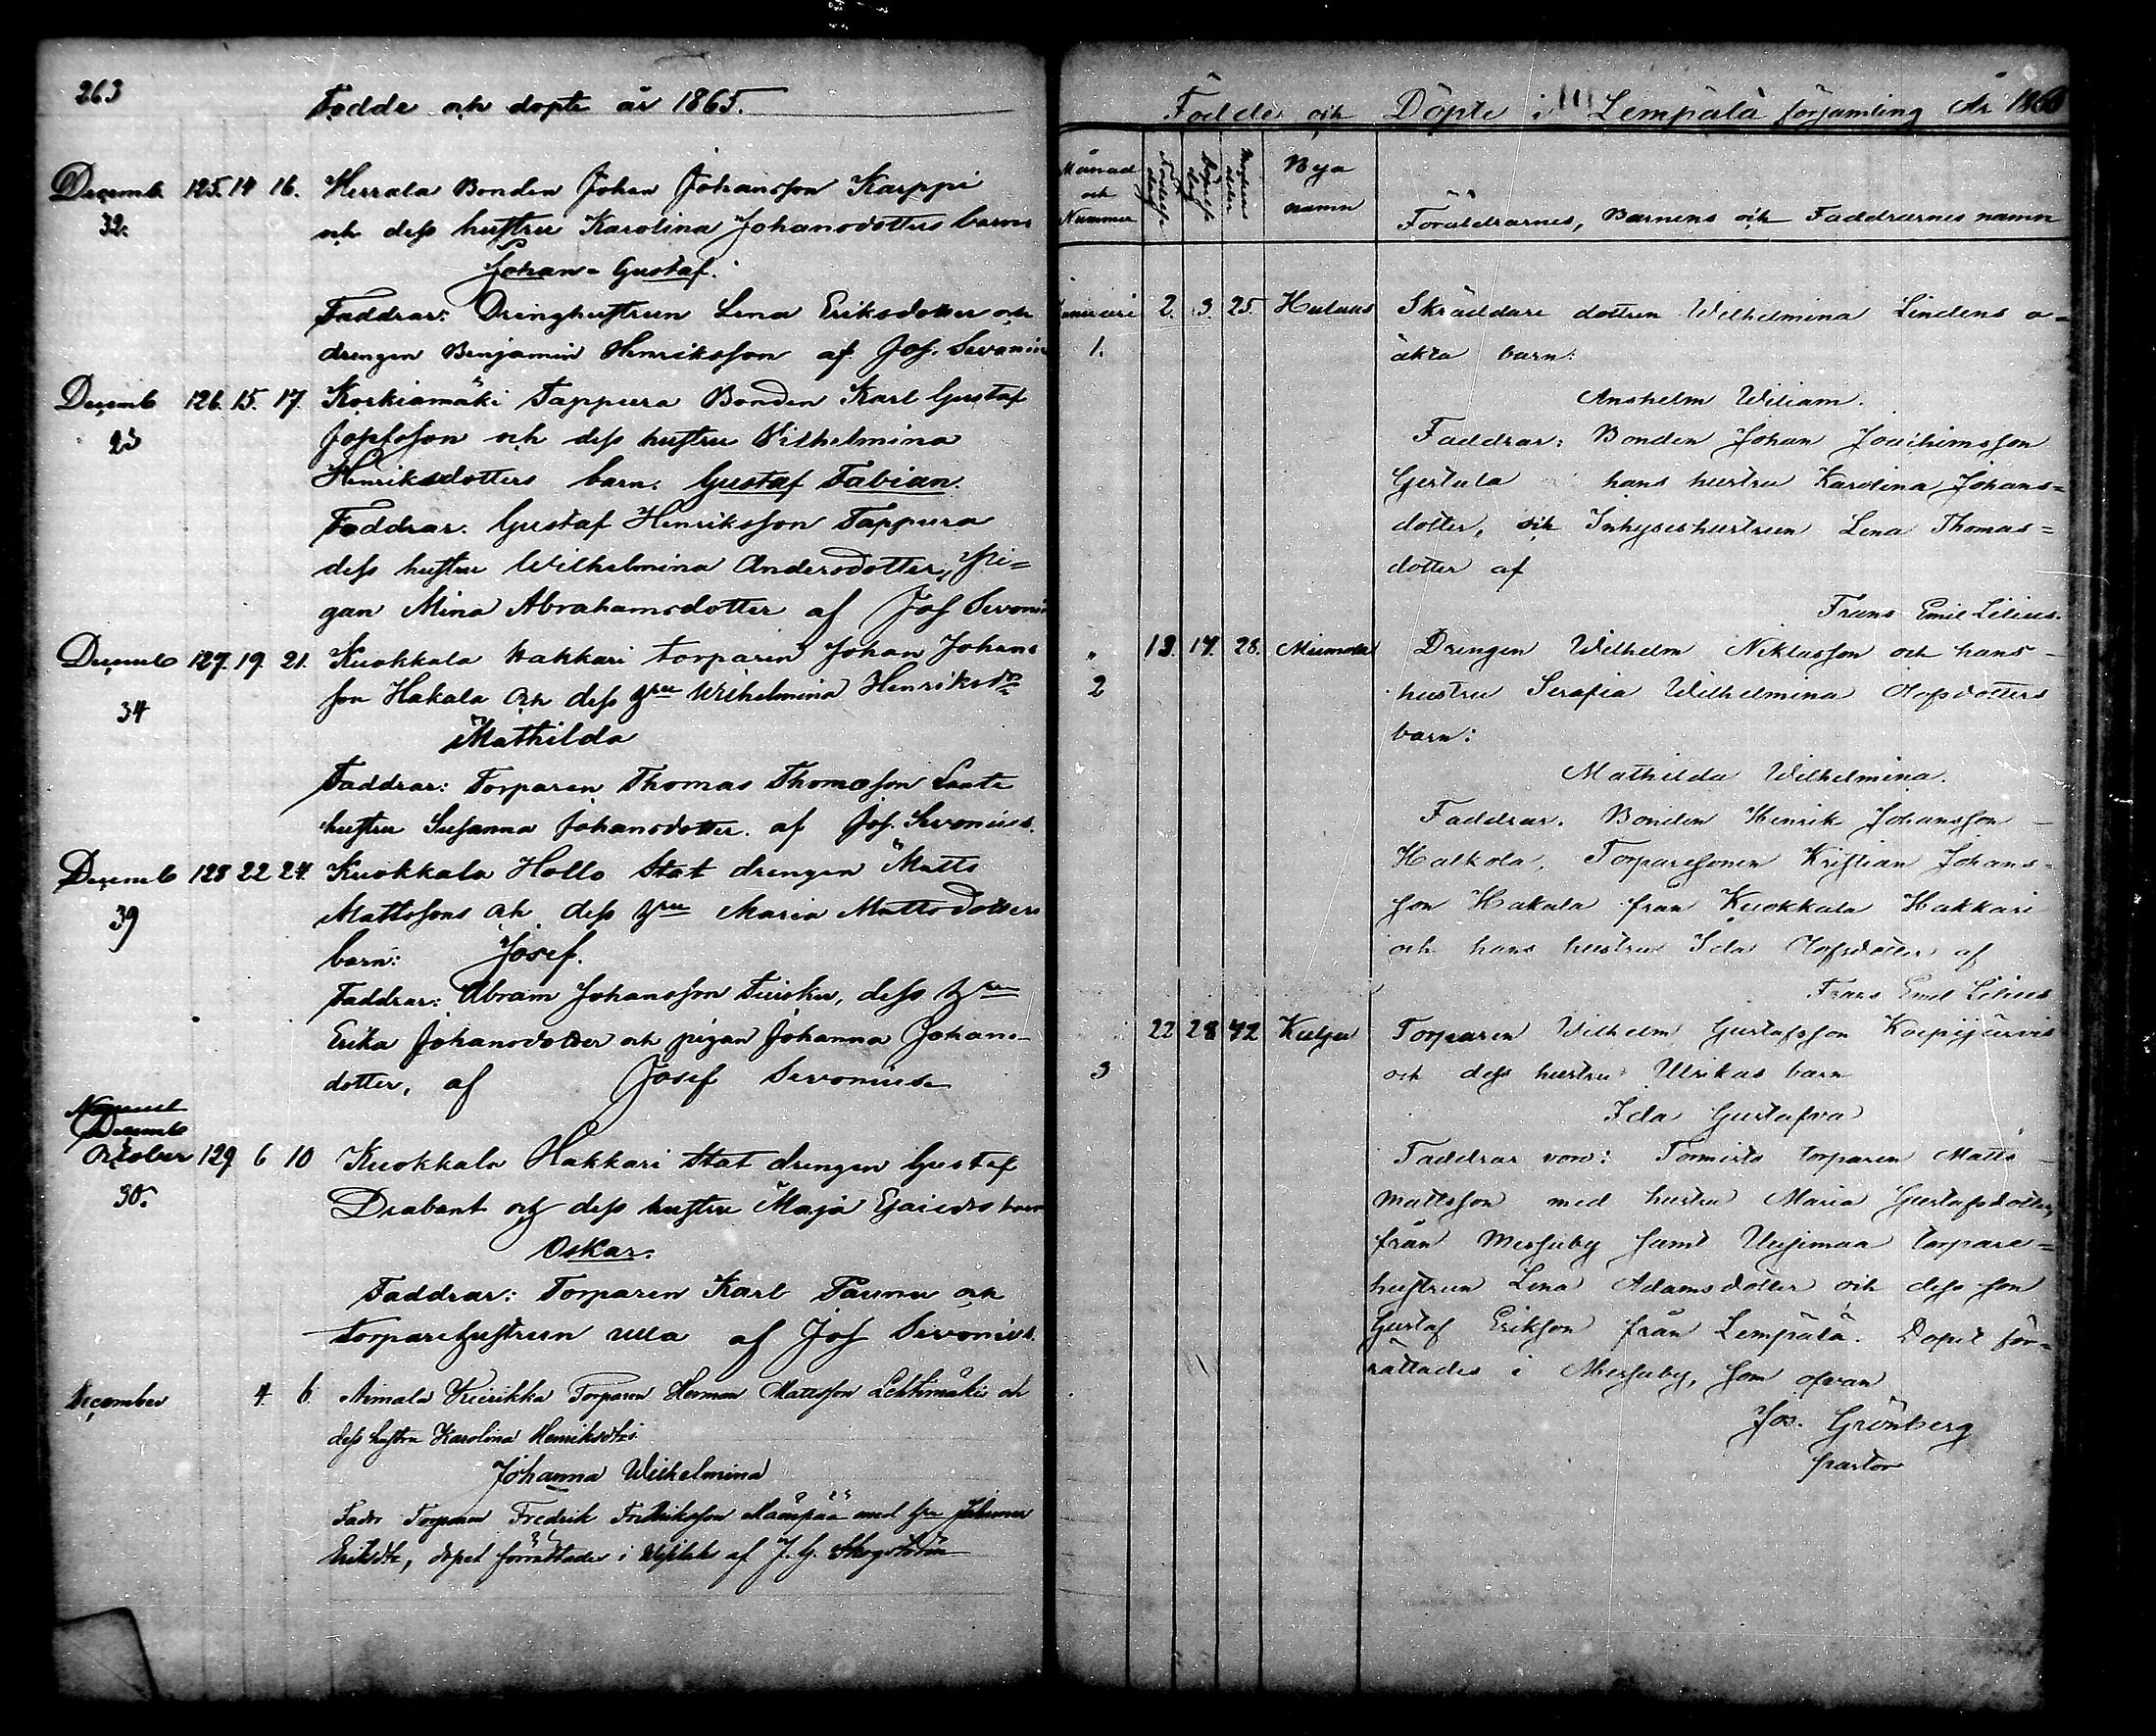 263
Födde och döpte år 1865.
Decemb. 125. 14 16. Herrala Bonden Johan Johansson Karppi
32. och dess hustru Karolina Johansdotters barn
Johan Gustaf.
Faddrar: Drenghustrun Lena Eriksdotter och
drengen Benjamin Henriksson af Jos. Sevonius
Decemb 126. 15. 17. Korkiamäki Tappura Bonden Karl Gustaf
23 och dess hustru Vilhelmina
Henriksdotters barn. Gustaf Fabian.
Faddrar. Gustaf Henriksson Tappura
dess hustru Wilhelmina Andersdotter, Pi=
gan Mina Abrahamsdotter af Jos Sevonius
Decemb 127. 19. 21. Kuokkala Hakkari torparen Johan Johans
34 son Hakala och dess Hru Wilhelmina Henriksdr
Mathilda
Faddrar: Torparen Thomas Thomasson
hustru Susanna Johansdotter. af Jos. Sevonius.
Decemb 128 22 24. Kuokkala Hollo Stat drengen Matts
39 Mattssons och dess Hru Maria Mattsdotters
barn: Josef.
Faddrar: Abram Johansson Tuisku, dess Hru
Erika Johansdotter och pigan Johanna Johans-
dotter, af Josef Sevonius
Decemb
October 129 6 10 Kuokkala Hakkari Stat drengen Gustaf
30. Drabant och dess hustru Maja barn
Oskar.
Faddrar: Torparen Karl och
torparehustrun Ulla af Jos Sevonius.
December 4. 6. Aimala Kuirikka Torparen Herman Mattsson Lehtimäki och
dess hustru Karolina Henriksdtrs
Johanna Wilhelmina
Faddr Torparen Fredrik Fredriksson Mäenpää med Hru Johanna
Eriksdtr, dopet förrättades i af J. G.
Födde och Döpte i Lempälä församling År 1866
Månad och Nummer
Födelse dag
Döpelse dag
Modrens ålder
Bya namn
Föräldrarnes, Barnens och Faddrarnes namn
Januari 2. 3. 25. Hulaus Skräddare dottren Wilhelmina Lindens o=
1. äkta barn:
Anshelm Wiliam.
Faddrar: Bonden Johan Joachimsson
Gertula hans hustru Karolina Johans=
dotter, och Inhyseshustrun Lena Thomas=
dotter af
Frans Emil Lilius.
" 13. 14. 28. Miemola Drengen Wilhelm Niklasson och hans
2 hustru Serafia Wilhelmina Olofsdotters
barn:
Mathilda Wilhelmina.
Faddrar. Bonden Henrik Johansson
Halkola, Torparesonen Kristian Johans-
son Hakala från Kuokkala Hakkari
och hans hustru Ida Olofsdotter af
Frans Emil Lilius
22 28 42 Kulju Torparen Wilhelm Gustafsson
3 och dess hustru Ulrikas barn
Ida Gustafva
Faddrar voro: Tormisto torparen Matts
Mattsson med hustru Maria Gustafsdotter,
från Messuby samt Uusimaa torpare=
hustrun Lena Adamsdotter och dess son
Gustaf Eriksson från Lempälä. Dopet för=
rättades i Messuby, som ofvan
Jos. Grönberg
pastor